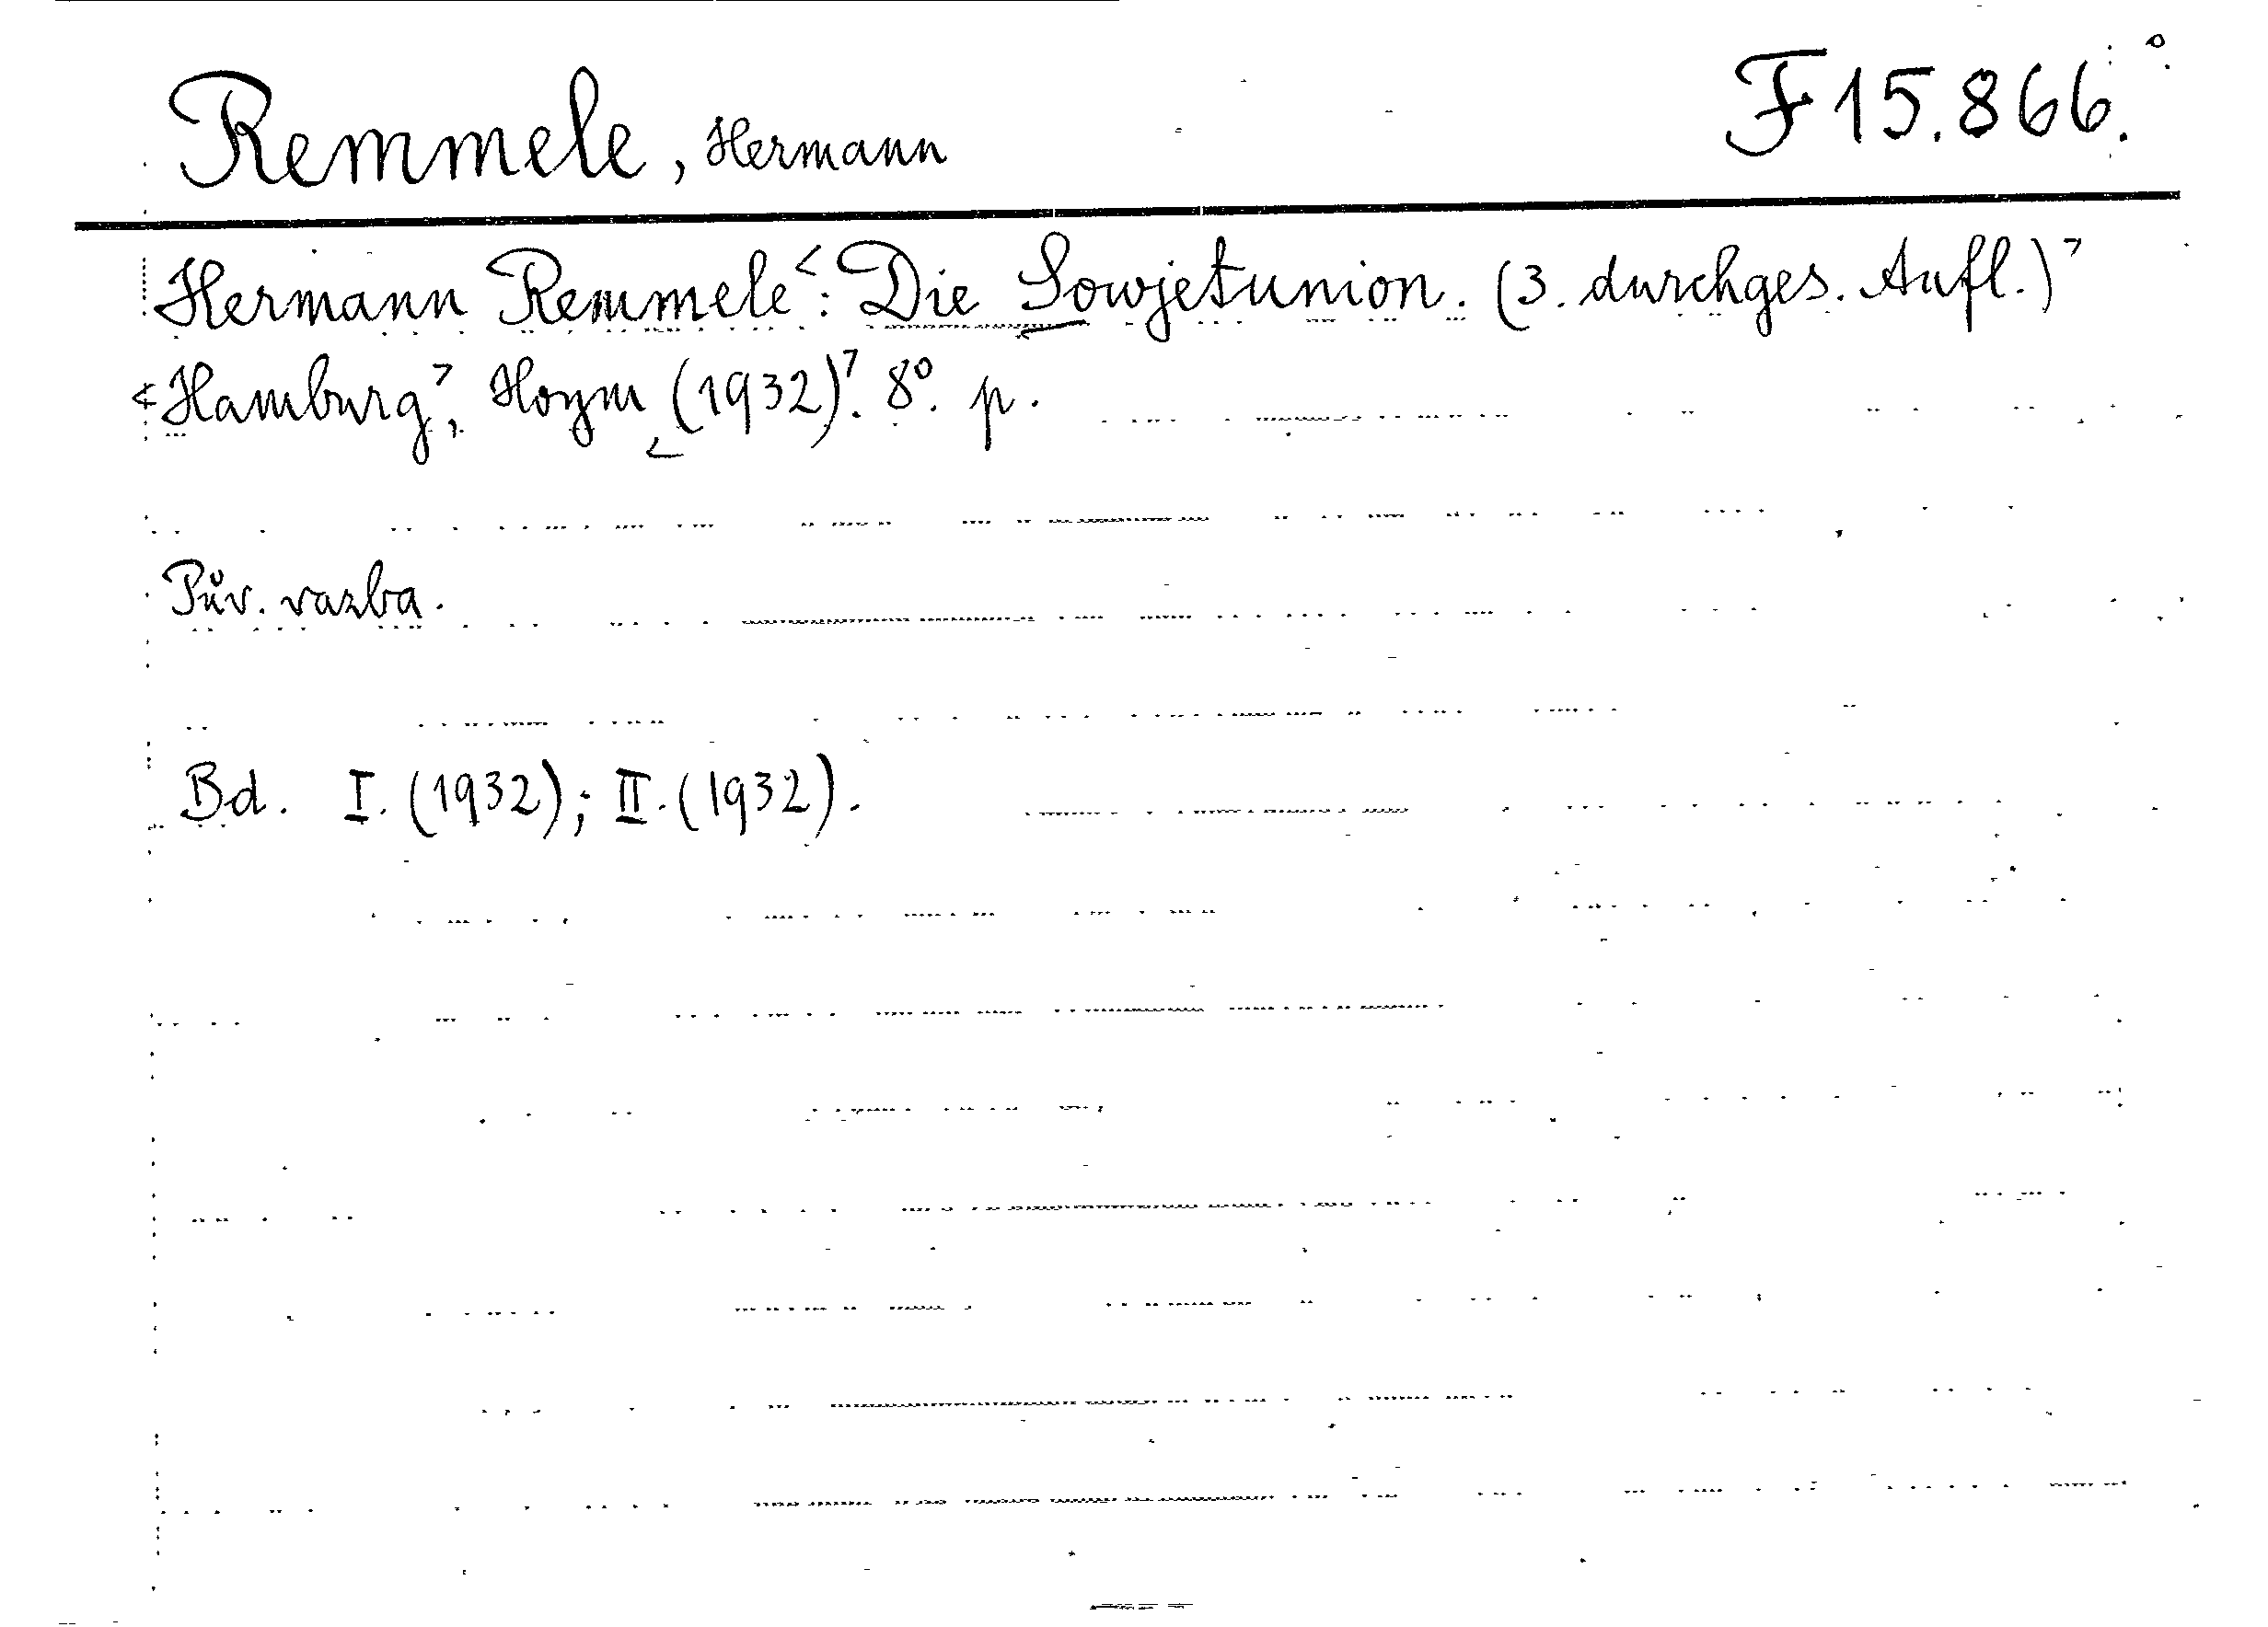 Remmele, Hermann F 15.866.
Hermann Remmele<: Die Sowjetunion. (3. durchges. Aufl.)>
<Hamburg>, Hoym <(1932)>. 8°. p.
Pův. vazba.
Bd. I. (1932); II. (1932).